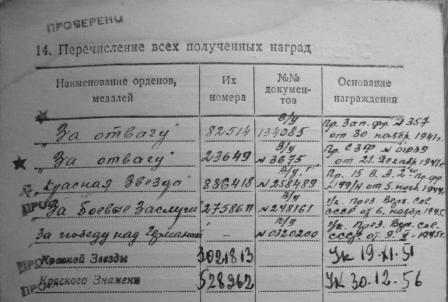 ПРОВЕРЕНО
14. Перечисление всех полученных наград
Наименование орденов, медалей Их номера №№ документов Основание награждения
"За отвагу" 82514 в/у 134085 Пр. Зап. фр. № 0357 от 30 ноябр. 1941г.
"За отвагу" 23649 в/у № 3675 Пр. СЗФ № 01039 от 21 декабр 1941г.
"Красная Звезда" 886418 в/у № 258489 Пр. 15 В.А. 2 Пр. фр № 99/н от 5 1944
"За боевые заслуги" 2758611 № 248161 Ук. През. Верх. Сов. СССР от 6. ноябр. 1945г.
За победу над Германией — п/у № 0320200 Ук. През. Верх. Сов. СССР. от 9. V - 1945г.
Красной Звезды 3021813 Ук 19.XI.51
Красного Знамени 528962 Ук 30.12.56
ПРО
ПРО